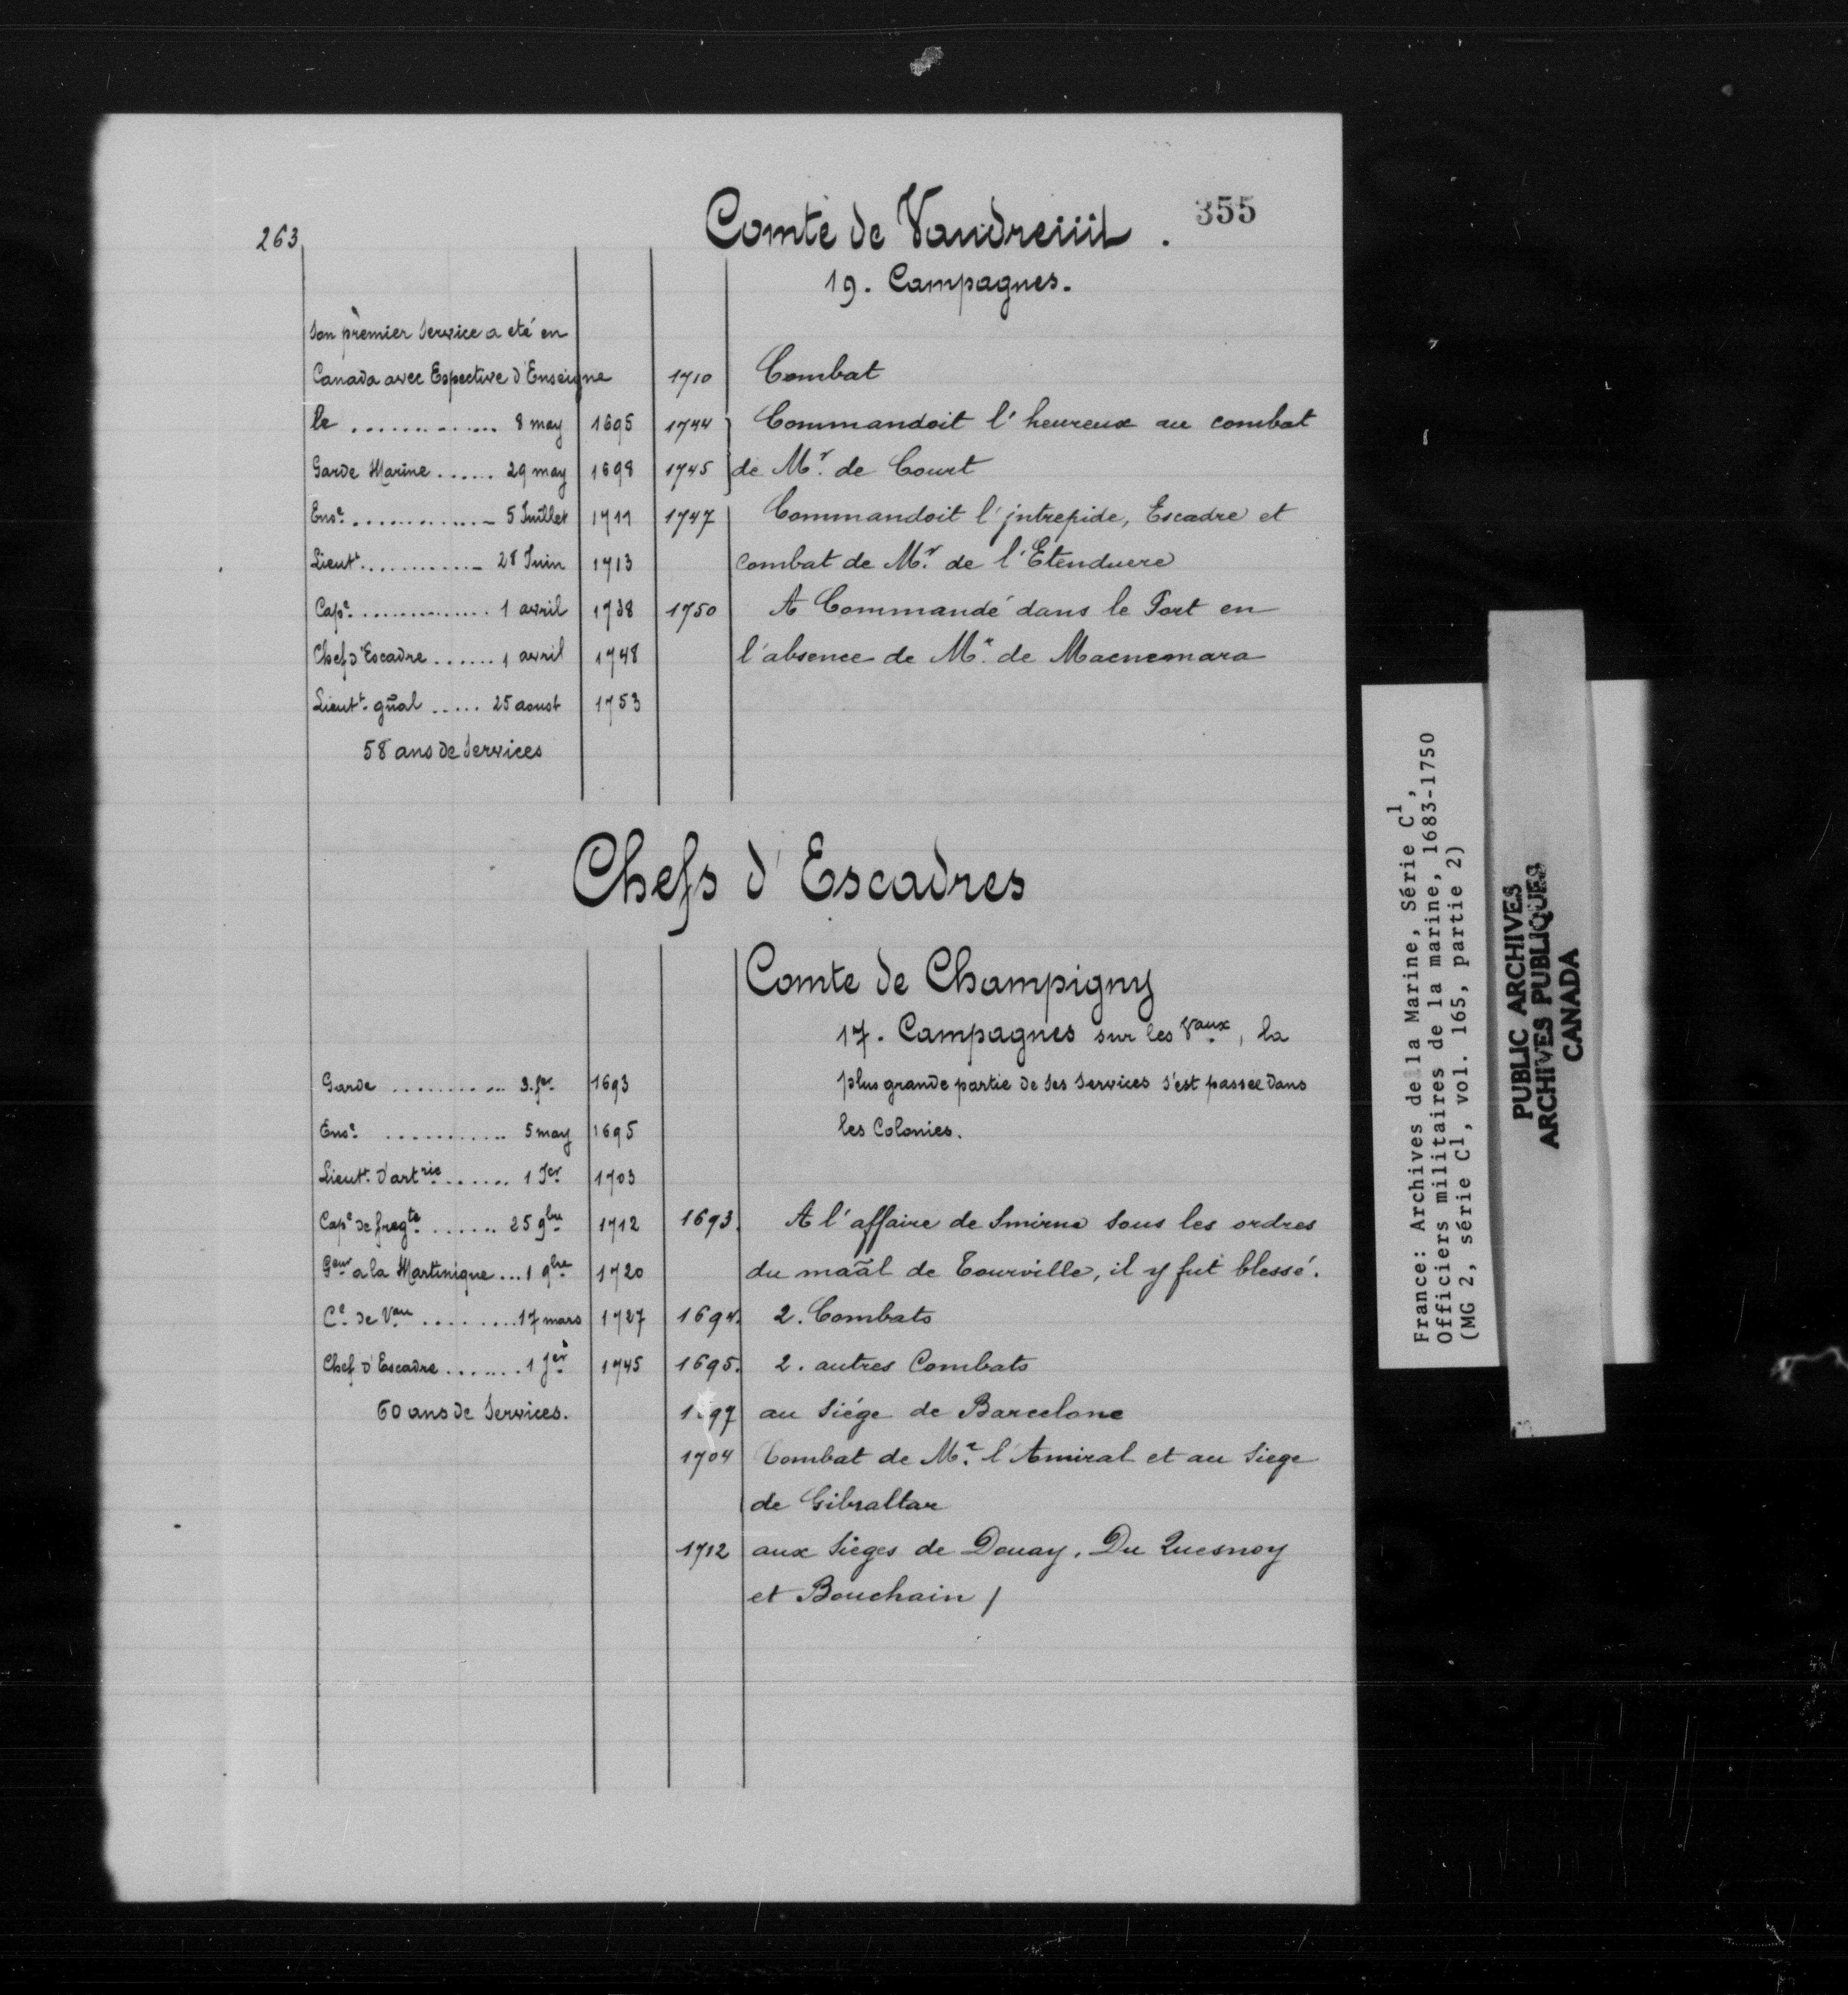 355
263
Comte de Vaudreüil.
19. Campagnes.
Son premier Service a eté en
Canada avec Expective d'Enseigne 1710 Combat
le ............. 8 may 1695 1744 Commandoit l'heureux au combat
Garde Marine ...... 29 may 1698 1745 de Mr. de Court
Ense. ............. 5 Juillet 1711 1747 Commandoit l'jntrepide, Escadre et
Lieutt. ............ 28 Juin 1713 combat de Mr. de l'Etenduere
Cape. .............. 1 avril 1738 1750 A Commandé dans le Port en
Chef d'Escadre ...... 1 avril 1748 l'absence de Mr. de Macnemara
Lieutt. gñal ..... 25 aoust 1753
58 ans de Services
Chefs d'Escadres
Comte de Champigny
17. Campagnes sur les Vaux, la
Garde .......... 3. fer. 1693 plus grande partie de ses Services s'est passée dans
Ense. ........... 5 may 1695 les Colonies.
Lieutt. d'artrie ...... 1 Jer 1703
Cape de fregte ....... 25 9bre 1712 1693. A l'affaire de Smirne sous les ordres
Geur a la Martinique ... 1 9bre 1720 du maãl de Tourville, il y fut blessé.
Ce. de Vau ......... 17 mars 1727 1694. 2. Combats
Chef d'Escadre ....... 1 Jer 1745 1695. 2. autres Combats
60 ans de Services. 1697 au Siége de Barcelone
1704 Combat de Mr. l'Amiral et au Siege
de Gibraltar
1712 aux Sieges de Douay, Du Quesnoy
et Bouchain /
France: Archives de la Marine, Série C1,
Officiers militaires de la marine, 1683-1750
(MG 2, série C1, vol. 165, partie 2)
PUBLIC ARCHIVES
ARCHIVES PUBLIQUES
CANADA